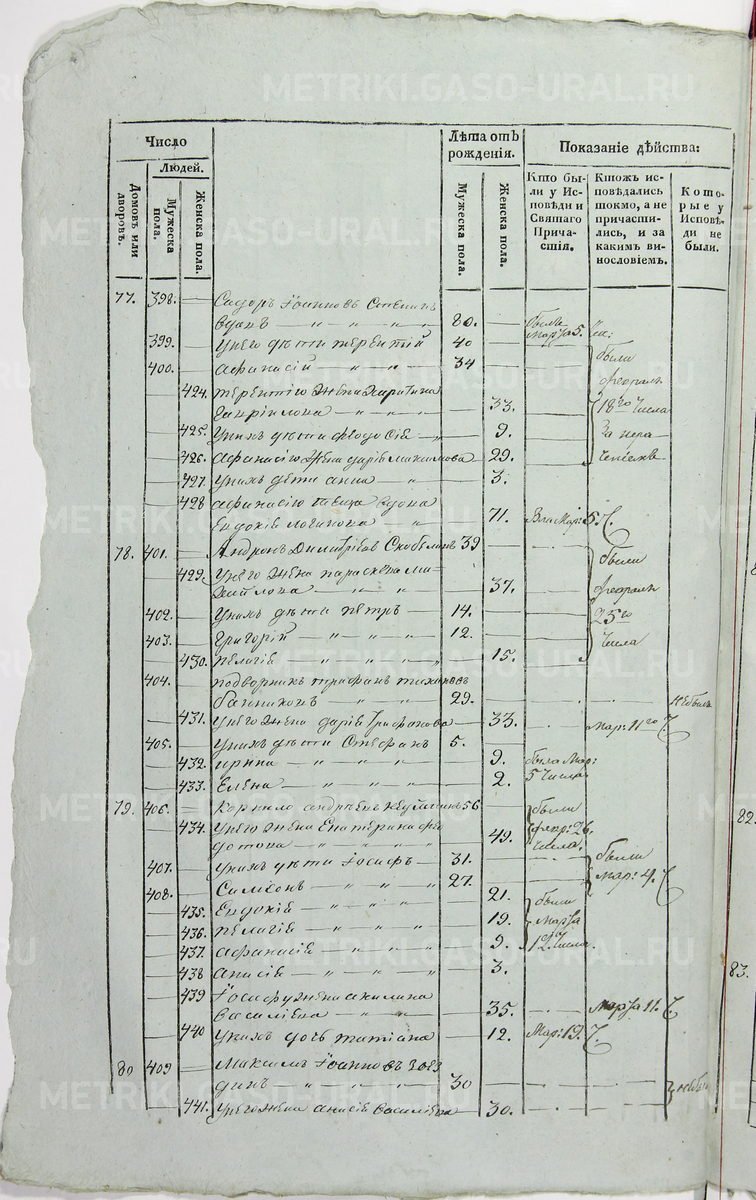 METRIKI.GASO-URAL.RU
Число
Лѣта отъ рожденія.
Показаніе дѣйства:
Людей.
Домовъ или дворовъ.
Мужеска пола.
Женска пола.
Мужеска пола.
Женска пола.
Кто были у Исповѣди и Святаго Причастія.
Ктожъ исповѣдались токмо, а не причастились, и за какимъ винословіемъ.
Которые у Исповѣди не были.
77. 398. — Сидоръ Іоанновъ
вдовъ — 80. — были Марта 5. Чис:
399. — У него дѣти терентий 40
400. — Афанасій 34 были
424. терентію жена
Гавріилова — 33. февраля 18го числа
425. У нихъ дѣти феодосія 9. За нера
426. Афанасію жена дарія максимова 29.
427. У нихъ дѣти анна 3.
428 афанасію вдова
Евдокія логинова 71. Мар: 5.
78. 401. — Андронъ Димитріевъ 39
429. У него жена параскева ми
хайлова — 37. были февраля
402. — У нихъ дѣти петръ — 14. 25го
403. — Григорій 12. числа
430. пелагія 15.
404. — подворникъ трифонъ
29. не былъ
431. У него жена дарія Трифонова 33. мар: 11го
405. — У нихъ дѣти Стефанъ 5.
432. ирина 9. была Мар:
433. Елена — 2. 5 числа.
79. 406. — Корнило андреевъ 56
434. У него жена Екатерина фе
дотова — 49. были февр: 26. числа.
407. — У нихъ дѣти Іосифъ — 31. были
408. — Симеонъ 27. мар: 4.
435. Евдокія 21. были
436. пелагія 19. Марта
437. афанасія 9. 12 числа.
438 анисія 3.
439 Іосифу жена акилина
василіева — 35. Марта 11.
440 У нихъ дочь татиана 12. Мар: 19.
80 409 — Максимъ Іоанновъ
динъ 30 не были
441. У него жена анисія василіева 30.
82.
83.